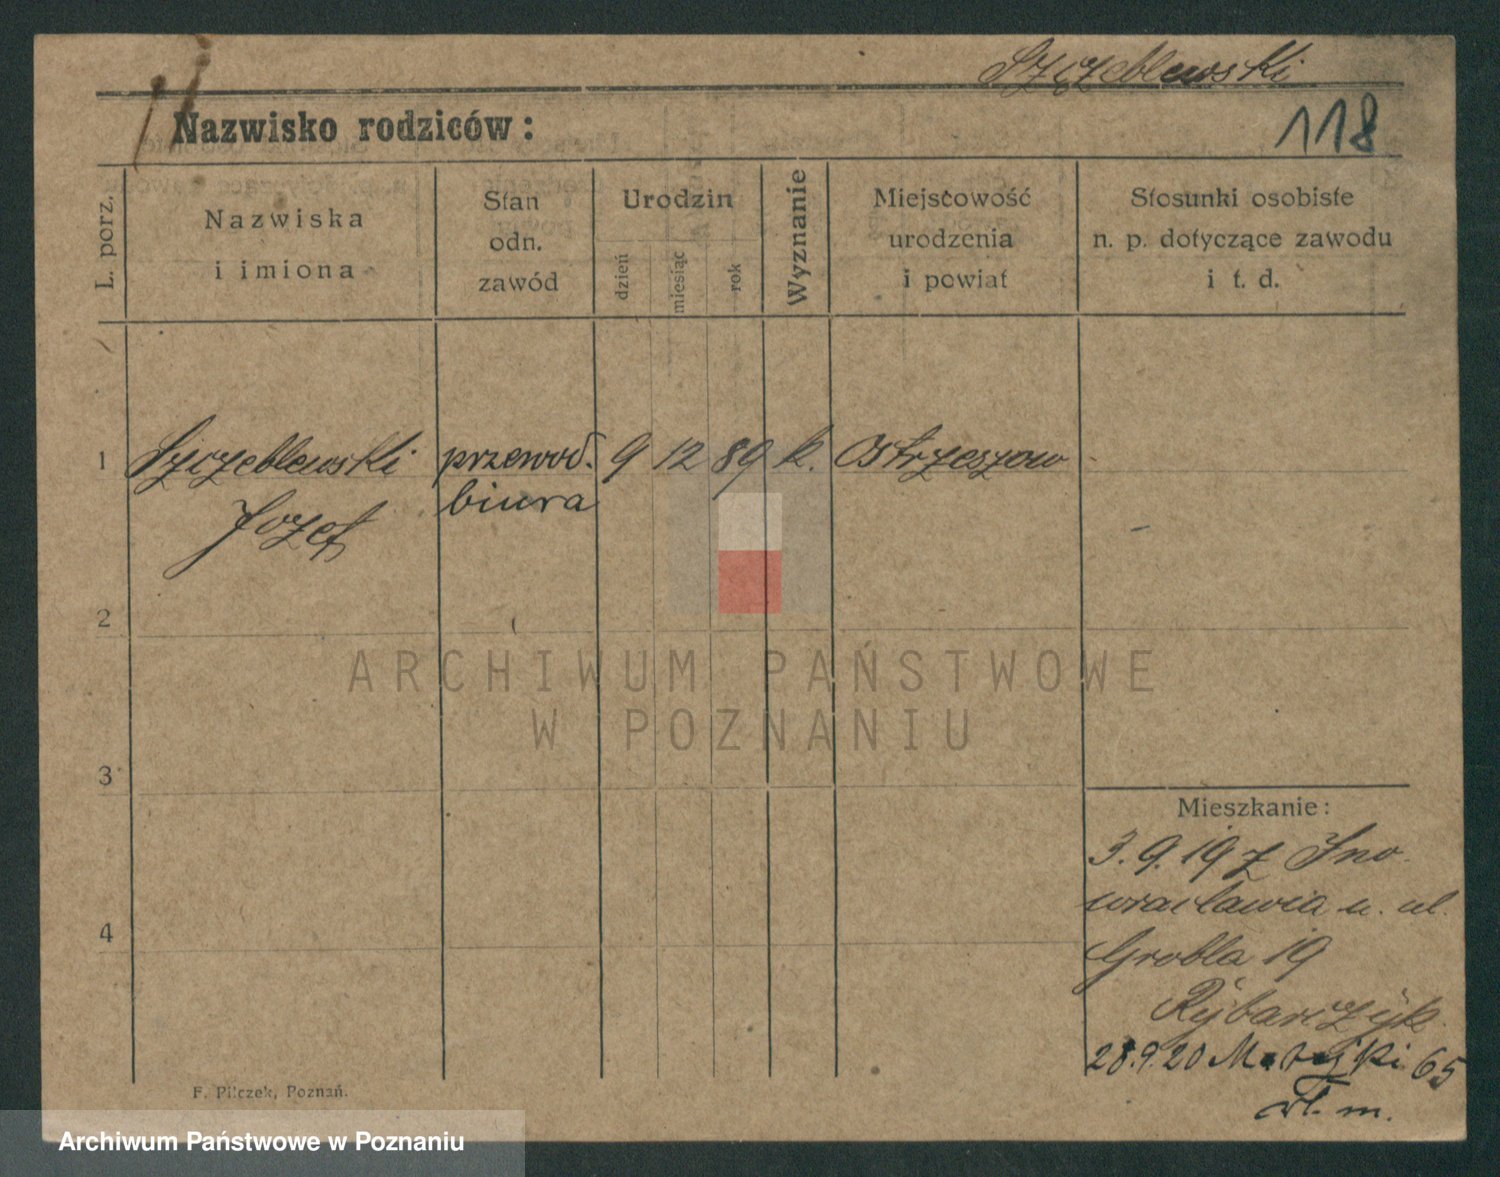 Szczeblewski
118
Nazwisko rodziców:
L. porz.
Nazwiska
i imiona
Stan
odn.
zawód
Urodzin
dzień
miesiąc
rok
Wyznanie
Miejscowość
urodzenia
i powiat
Stosunki osobiste
n. p. dotyczące zawodu
i t. d.
1 Szczeblewski przewod. 9 12 89 k. Ostrzeszow
Jozef biura
2
3
4
Mieszkanie:
3.9.19 z Ino-
wracławia u. ul.
Grobla 19
Rybarczyk.
28.9.20 Matejki 65
m.
F. Pilczek, Poznań.
ARCHIWUM PAŃSTWOWE
W POZNANIU
Archiwum Państwowe w Poznaniu